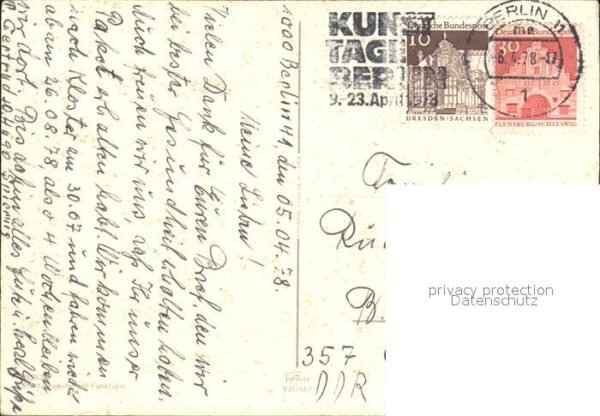 1000 Berlin 41, den 05.04.78.
Meine Lieben!
Vielen Dank für Euren Brief, den wir
bei bester Gesundheit erhalten haben.
Auch freuen wir uns daß Ihr unser
Paket erhalten habt. Wir kommen
nach Kloster am 30.07 und fahren wieder
ab am 26.08.78 also 4 Wochen bleiben
wir dort. Bis dahin alles Gute u. herzl. Grüße
KUNST
TAGE
BERLIN
9.-23. April 1978
Deutsche Bundespost
10
DRESDEN/SACHSEN
Deutsche Bundespost
30
FLENSBURG/SCHLESWIG
BERLIN 11
-6.4.78-17
1
357
DDR
KRÜGER
921/187
Funkturm
privacy protection
Datenschutz